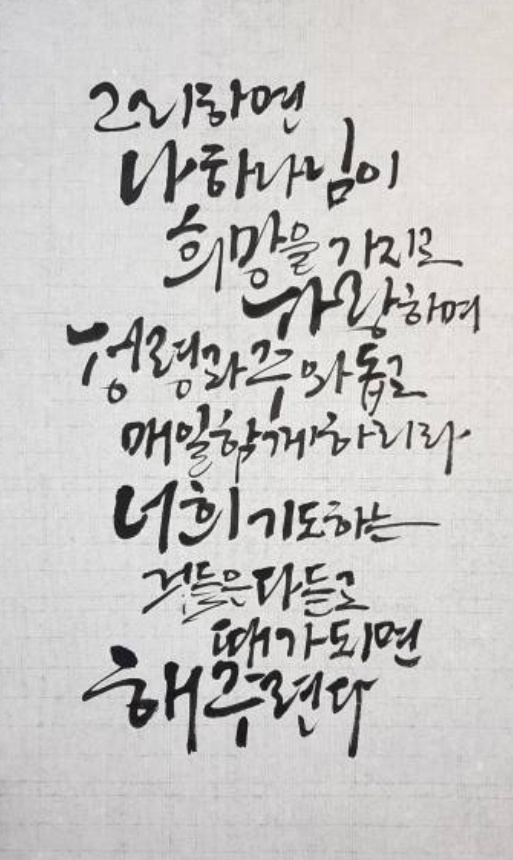 그리하면
나 하나님이
희망을 가지고
사랑하며
성령과 주와 돕고
매일 함께하리라
너희 기도하는
것들은 다 들고
때가 되면
해주련다